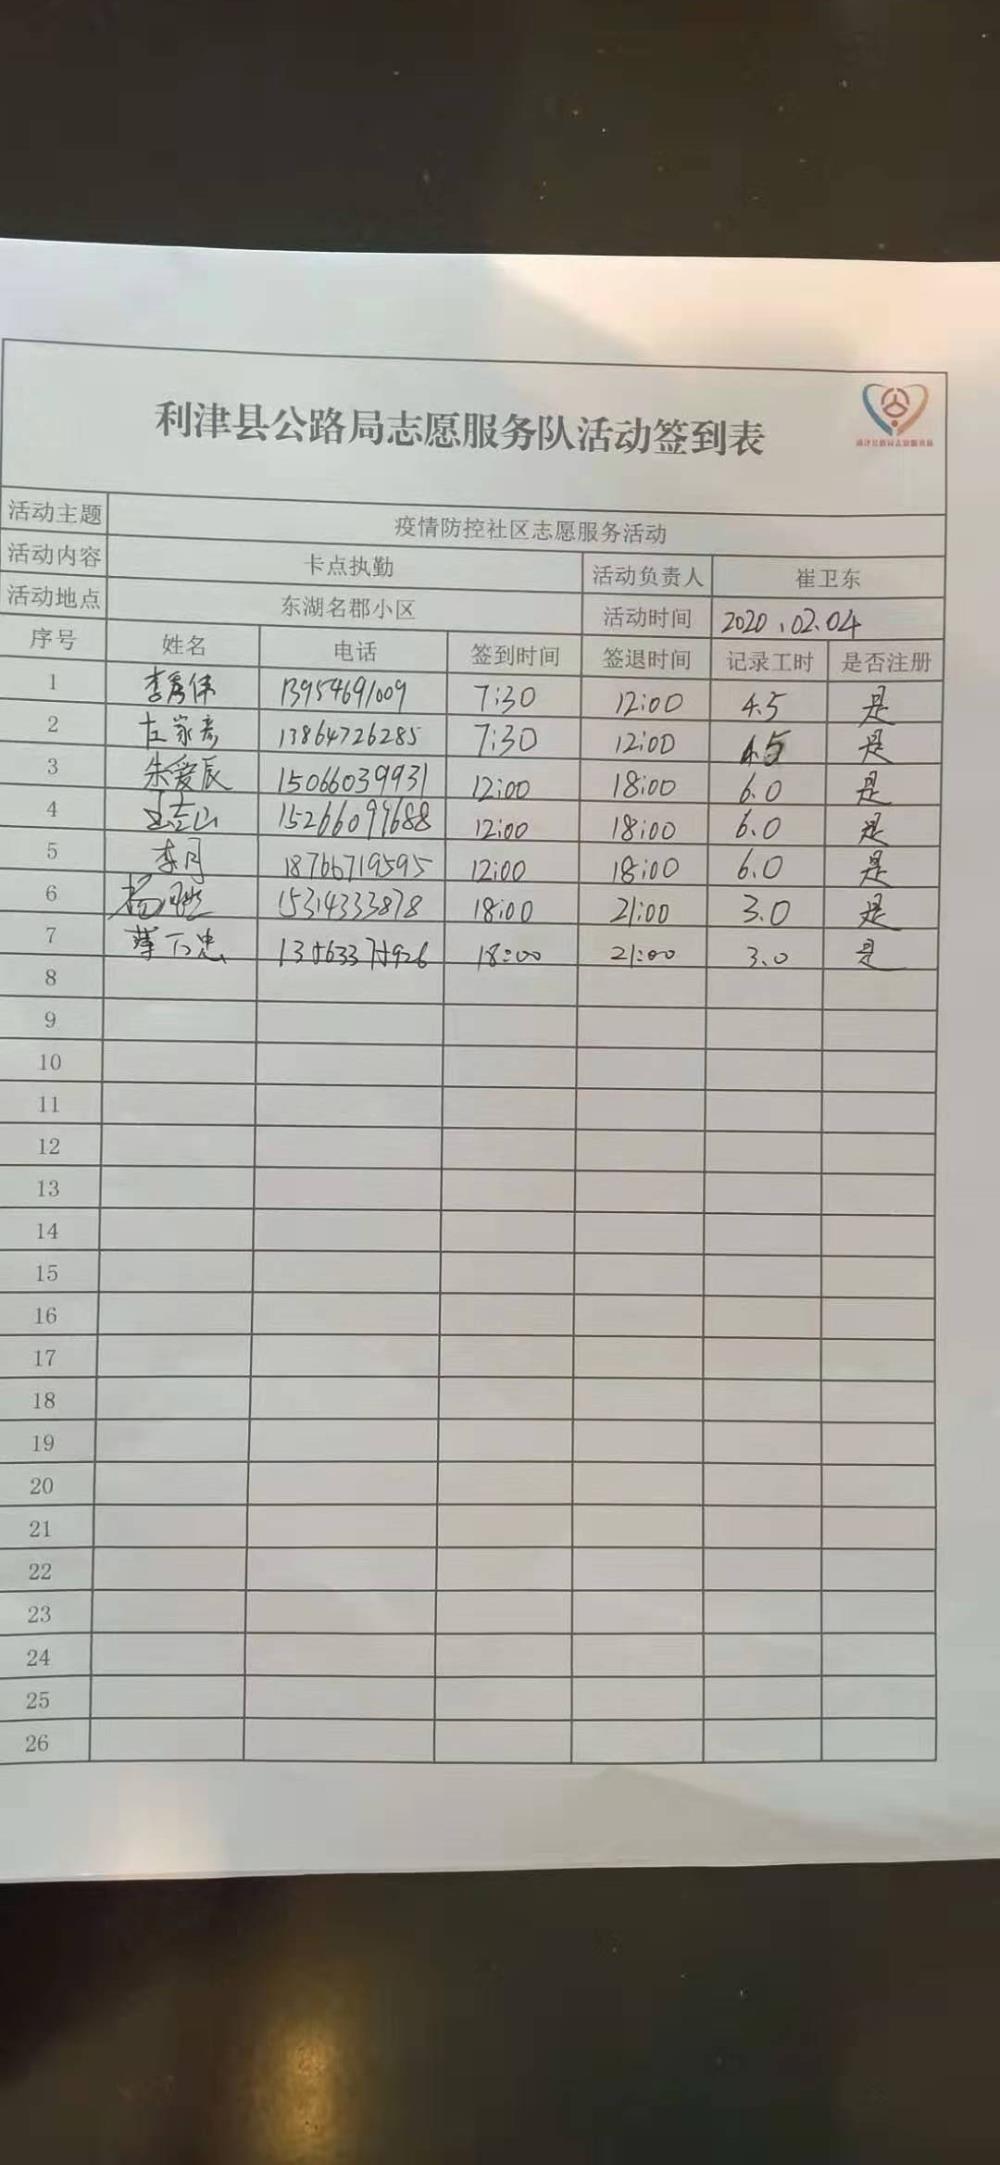 利津县公路局志愿服务队活动签到表
活动主题 疫情防控社区志愿服务活动
活动内容 卡点执勤 活动负责人 崔卫东
活动地点 东湖名郡小区 活动时间 2020.02.04
序号 姓名 电话 签到时间 签退时间 记录工时 是否注册
1 李秀伟 13954691009 7:30 12:00 4.5 是
2 左家彦 13864726285 7:30 12:00 4.5 是
3 朱爱辰 15066039931 12:00 18:00 6.0 是
4 15266099688 12:00 18:00 6.0 是
5 李月 18766719595 12:00 18:00 6.0 是
6 杨 15314333878 18:00 21:00 3.0 是
7 薄 18:00 21:00 3.0 是
8
9
10
11
12
13
14
15
16
17
18
19
20
21
22
23
24
25
26